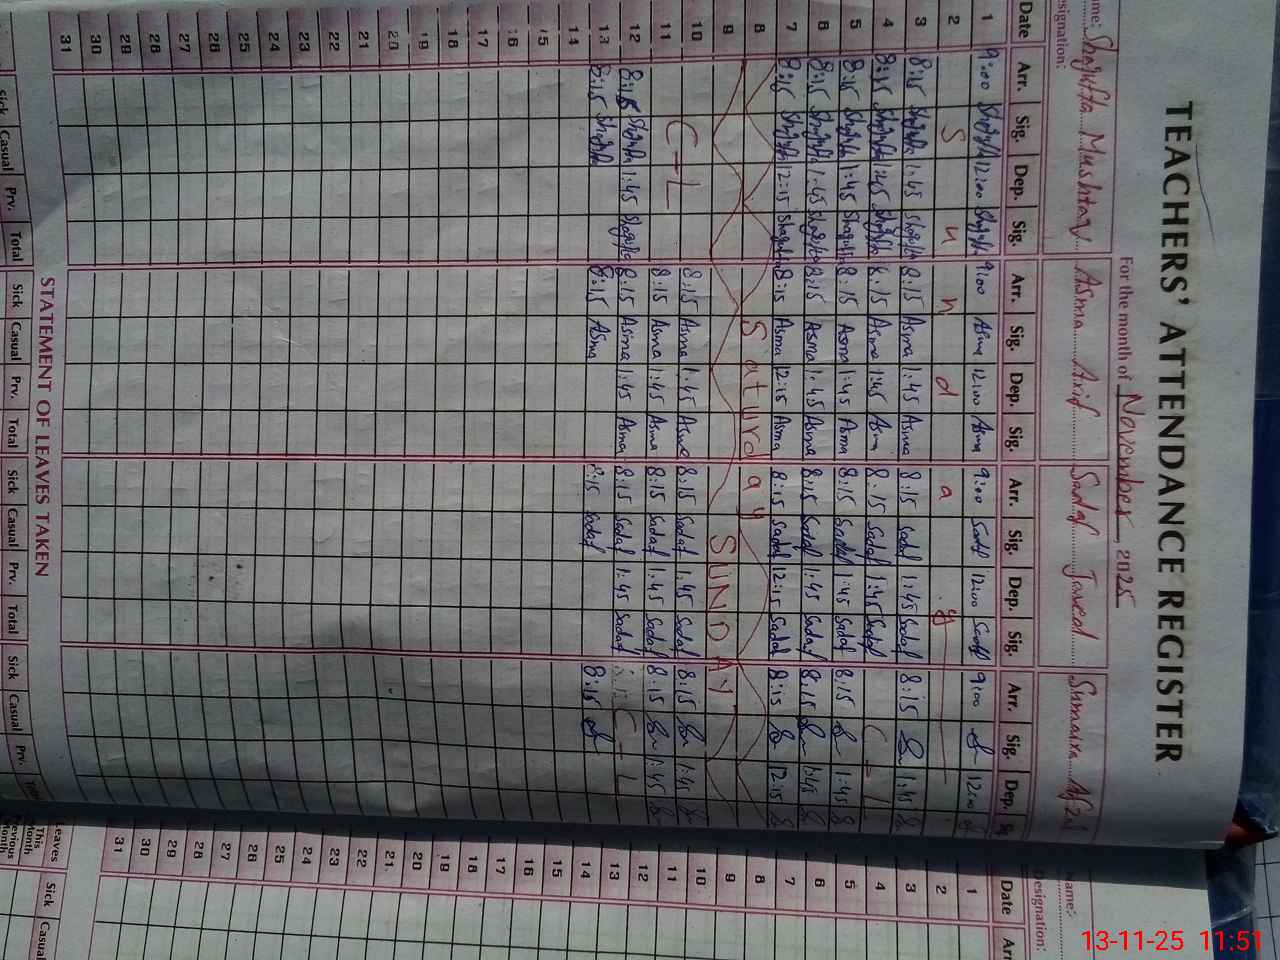 TEACHERS' ATTENDANCE REGISTER
For the month of November 2025
Name: Shagufta Mushtaq Asma Arif Sadaf Javed Sumaira Afzal
Designation:
Date Arr. Sig. Dep. Sig. Arr. Sig. Dep. Sig. Arr. Sig. Dep. Sig. Arr. Sig. Dep.
1 9:00 Shagufta 12:00 Shagufta 9:00 Asma 12:00 Asma 9:00 Sadaf 12:00 Sadaf 9:00 12:00
2 S u n d a y
3 8:15 Shagufta 1:45 Shagufta 8:15 Asma 1:45 Asma 8:15 Sadaf 1:45 Sadaf 8:15 1:45
4 8:15 Shagufta 1:45 Shagufta 8:15 Asma 1:45 Asma 8:15 Sadaf 1:45 Sadaf C-L
5 8:15 Shagufta 1:45 Shagufta 8:15 Asma 1:45 Asma 8:15 Sadaf 1:45 Sadaf 8:15 1:45
6 8:15 Shagufta 1:45 Shagufta 8:15 Asma 1:45 Asma 8:15 Sadaf 1:45 Sadaf 8:15 1:45
7 8:15 Shagufta 12:15 Shagufta 8:15 Asma 12:15 Asma 8:15 Sadaf 12:15 Sadaf 8:15 12:15
8 Saturday
9 SUNDAY
10 C-L 8:15 Asma 1:45 Asma 8:15 Sadaf 1:45 Sadaf 8:15 1:45
11 8:15 Asma 1:45 Asma 8:15 Sadaf 1:45 Sadaf 8:15 1:45
12 8:15 Shagufta 1:45 Shagufta 8:15 Asma 1:45 Asma 8:15 Sadaf 1:45 Sadaf C-L
13 8:15 Shagufta 8:15 Asma 8:15 Sadaf 8:15
14
15
16
17
18
19
20
21
22
23
24
25
26
27
28
29
30
31
STATEMENT OF LEAVES TAKEN
Sick Casual Prv. Total Sick Casual Prv. Total Sick Casual Prv. Total Sick Casual Prv.
Name:
Designation:
Date Arr
1
2
3
4
5
6
7
8
9
10
11
12
13
14
15
16
17
18
19
20
21
22
23
24
25
26
27
28
29
30
31
Leaves Sick Casual
This Month
Previous Month
13-11-25 11:51